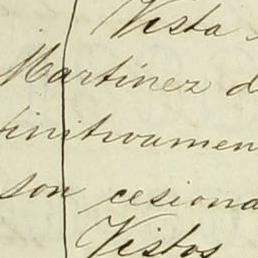 Vista
Martinez d
finitivamen
son cesiona
Vistos